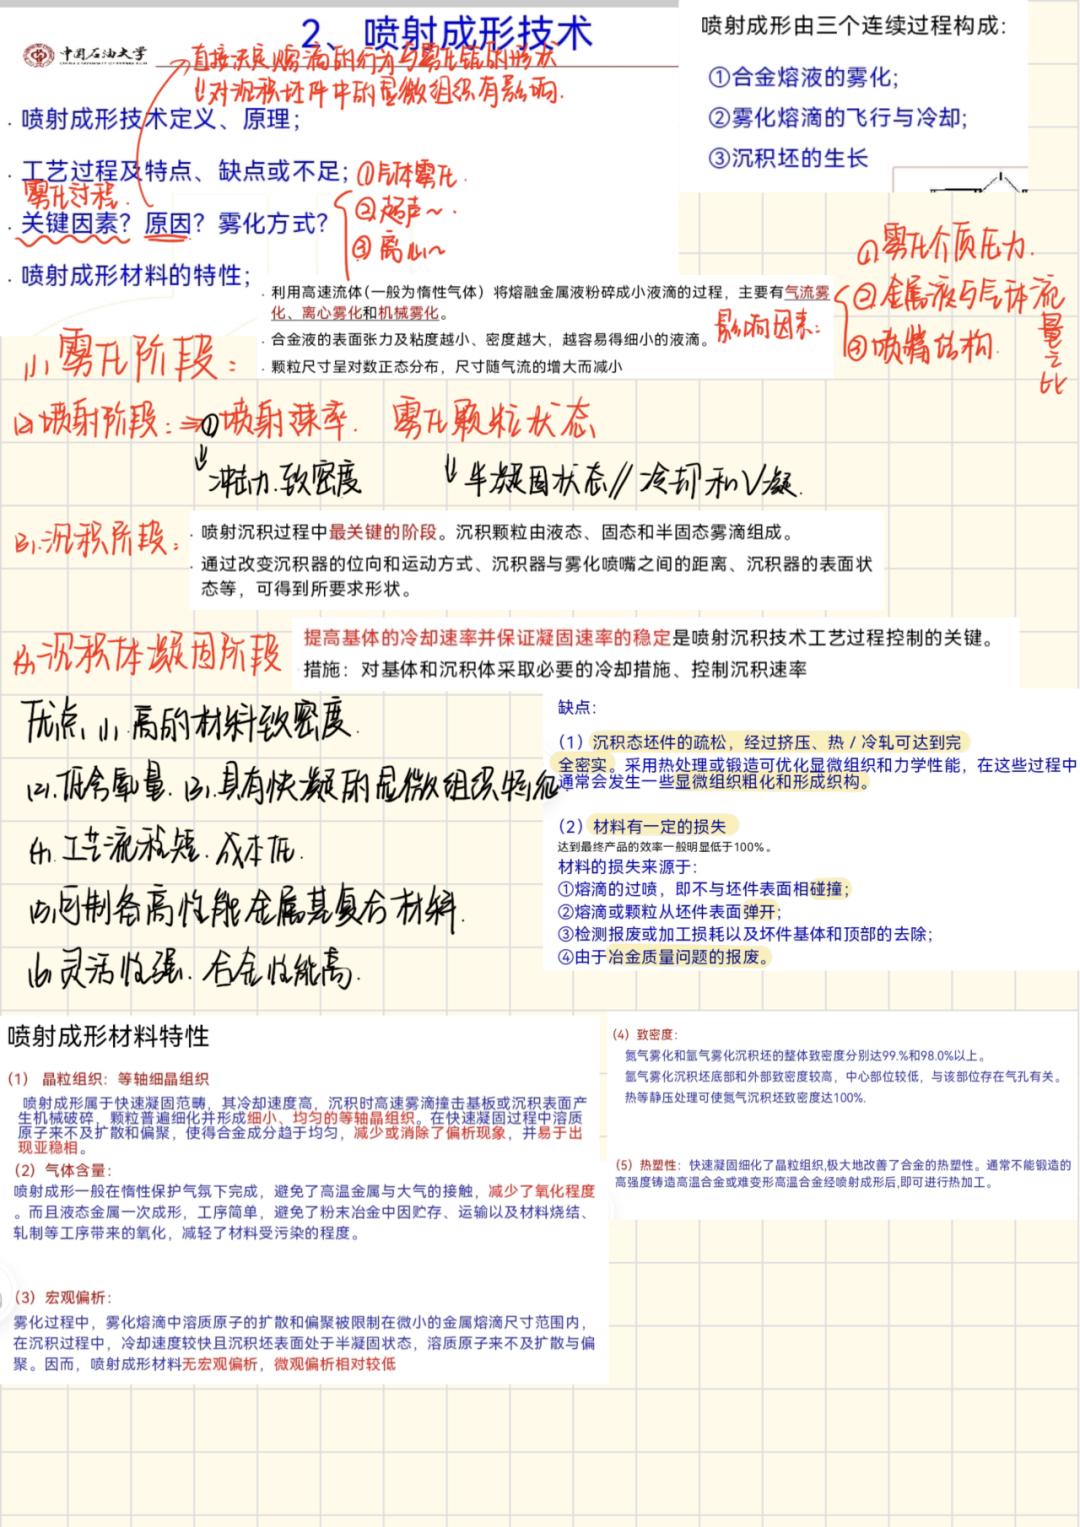 2、喷射成形技术
中国石油大学
直接决定熔滴的行为与雾化锥的形状
对沉积坯件中的显微组织有影响.
喷射成形由三个连续过程构成:
①合金熔液的雾化;
②雾化熔滴的飞行与冷却;
③沉积坯的生长
· 喷射成形技术定义、原理;
· 工艺过程及特点、缺点或不足;
雾化过程.
· 关键因素? 原因? 雾化方式?
①气体雾化.
②超声~.
③离心~
· 喷射成形材料的特性;
(1)雾化阶段:
· 利用高速流体(一般为惰性气体) 将熔融金属液粉碎成小液滴的过程, 主要有气流雾
化、离心雾化和机械雾化。
· 合金液的表面张力及粘度越小、密度越大, 越容易得细小的液滴。
· 颗粒尺寸呈对数正态分布, 尺寸随气流的增大而减小
影响因素:
①雾化介质压力.
②金属液与气体流量之比
③喷嘴结构.
(2)喷射阶段: ⇒①喷射速率. 雾化颗粒状态
↓冲击力.致密度 ↓半凝固状态//冷却和V凝.
(3).沉积阶段:
· 喷射沉积过程中最关键的阶段。沉积颗粒由液态、固态和半固态雾滴组成。
· 通过改变沉积器的位向和运动方式、沉积器与雾化喷嘴之间的距离、沉积器的表面状
态等, 可得到所要求形状。
(4).沉积体凝固阶段
提高基体的冷却速率并保证凝固速率的稳定是喷射沉积技术工艺过程控制的关键。
措施: 对基体和沉积体采取必要的冷却措施、控制沉积速率
优点、(1).高的材料致密度.
(2).低含氧量. (3).具有快凝的显微组织特征
(4).工艺流程短.成本低.
(5).可制备高性能金属基复合材料.
(6).灵活性强.合金性能高.
缺点:
(1) 沉积态坯件的疏松, 经过挤压、热 / 冷轧可达到完
全密实。采用热处理或锻造可优化显微组织和力学性能, 在这些过程中
通常会发生一些显微组织粗化和形成织构。
(2) 材料有一定的损失
达到最终产品的效率一般明显低于100%。
材料的损失来源于:
①熔滴的过喷, 即不与坯件表面相碰撞;
②熔滴或颗粒从坯件表面弹开;
③检测报废或加工损耗以及坯件基体和顶部的去除;
④由于冶金质量问题的报废。
喷射成形材料特性
(1) 晶粒组织: 等轴细晶组织
喷射成形属于快速凝固范畴, 其冷却速度高, 沉积时高速雾滴撞击基板或沉积表面产
生机械破碎, 颗粒普遍细化并形成细小、均匀的等轴晶组织。在快速凝固过程中溶质
原子来不及扩散和偏聚, 使得合金成分趋于均匀, 减少或消除了偏析现象, 并易于出
现亚稳相。
(2) 气体含量:
喷射成形一般在惰性保护气氛下完成, 避免了高温金属与大气的接触, 减少了氧化程度
。而且液态金属一次成形, 工序简单, 避免了粉末冶金中因贮存、运输以及材料烧结、
轧制等工序带来的氧化, 减轻了材料受污染的程度。
(3) 宏观偏析:
雾化过程中, 雾化熔滴中溶质原子的扩散和偏聚被限制在微小的金属熔滴尺寸范围内,
在沉积过程中, 冷却速度较快且沉积坯表面处于半凝固状态, 溶质原子来不及扩散与偏
聚。因而, 喷射成形材料无宏观偏析, 微观偏析相对较低
(4) 致密度:
氮气雾化和氩气雾化沉积坯的整体致密度分别达99.%和98.0%以上。
氩气雾化沉积坯底部和外部致密度较高, 中心部位较低, 与该部位存在气孔有关。
热等静压处理可使氮气沉积坯致密度达100%.
(5) 热塑性: 快速凝固细化了晶粒组织,极大地改善了合金的热塑性。通常不能锻造的
高强度铸造高温合金或难变形高温合金经喷射成形后,即可进行热加工。